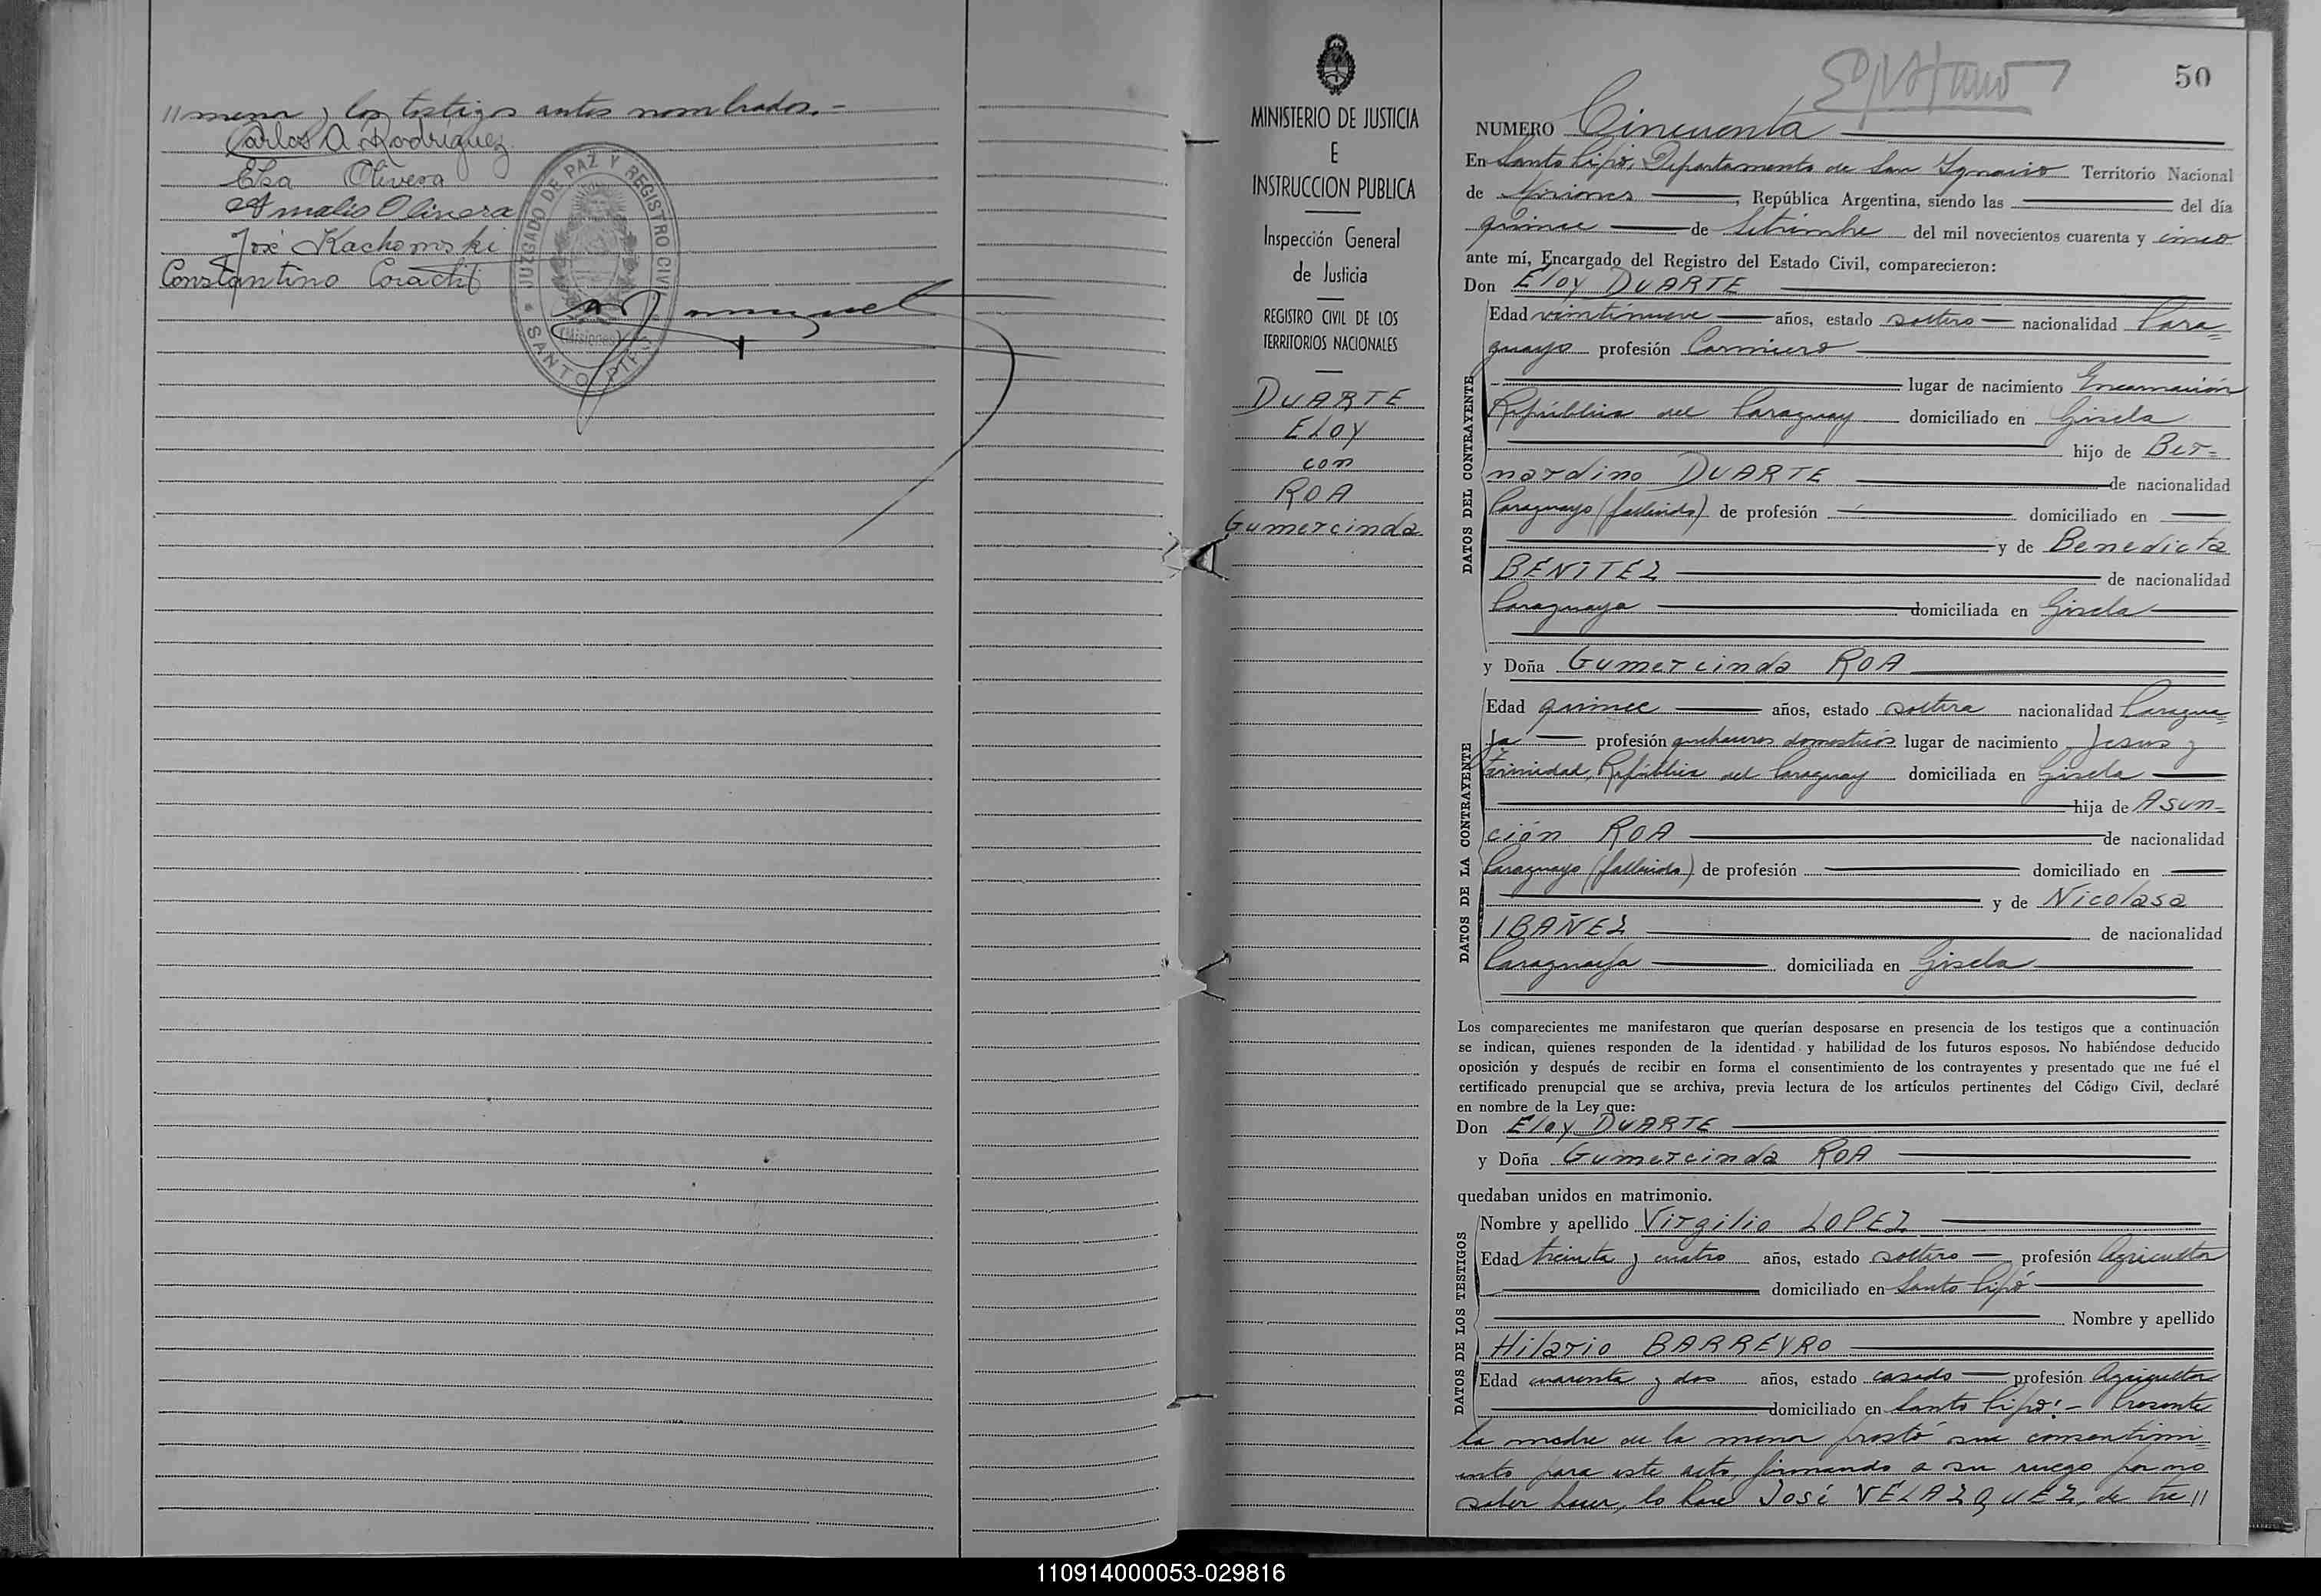 // menor y los testigos antes nombrados.-
Carlos A. Rodriguez
Elsa Olivera
Amalio Olivera
José Kachorroski
Constantino
JUZGADO DE PAZ Y REGISTRO CIVIL
(Misiones)
SANTO PIPÓ
MINISTERIO DE JUSTICIA
E
INSTRUCCION PUBLICA
Inspección General
de Justicia
REGISTRO CIVIL DE LOS
TERRITORIOS NACIONALES
DUARTE
ELOY
con
ROA
Gumercinda
50
NUMERO Cincuenta
En Santo Pipó, Departamento de San Ignacio Territorio Nacional
de Misiones, República Argentina, siendo las del día
quince de Setiembre del mil novecientos cuarenta y cinco
ante mí, Encargado del Registro del Estado Civil, comparecieron:
Don Eloy DUARTE
DATOS DEL CONTRAYENTE
Edad veintinueve años, estado soltero nacionalidad Para=
guayo profesión Carnicero
lugar de nacimiento Encarnación
República del Paraguay domiciliado en Gisela
hijo de Ber=
nardino DUARTE de nacionalidad
Paraguayo (fallecido) de profesión domiciliado en
y de Benedicta
BENITEZ de nacionalidad
Paraguaya domiciliada en Gisela
y Doña Gumercinda ROA
DATOS DE LA CONTRAYENTE
Edad quince años, estado soltera nacionalidad Paragua=
ya profesión quehaceres domesticos lugar de nacimiento Jesus y
Trinidad, República del Paraguay domiciliada en Gisela
hija de Asun=
ción ROA de nacionalidad
Paraguayo (fallecido) de profesión domiciliado en
y de Nicolasa
IBAÑEZ de nacionalidad
Paraguaya domiciliada en Gisela
Los comparecientes me manifestaron que querían desposarse en presencia de los testigos que a continuación
se indican, quienes responden de la identidad y habilidad de los futuros esposos. No habiéndose deducido
oposición y después de recibir en forma el consentimiento de los contrayentes y presentado que me fué el
certificado prenupcial que se archiva, previa lectura de los artículos pertinentes del Código Civil, declaré
en nombre de la Ley que:
Don Eloy DUARTE
y Doña Gumercinda ROA
quedaban unidos en matrimonio.
DATOS DE LOS TESTIGOS
Nombre y apellido Virgilio LOPEZ
Edad treinta y cuatro años, estado soltero profesión Agricultor
domiciliado en Santo Pipó
Nombre y apellido
Hilario BARREYRO
Edad cuarenta y dos años, estado casado profesión Agricultor
domiciliado en Santo Pipó.- Presente
la madre de la menor prestó su consentimi=
ento para este acto, firmando a su ruego por no
saber hacer, lo hace José VELAZQUEZ, de tre//
110914000053-029816